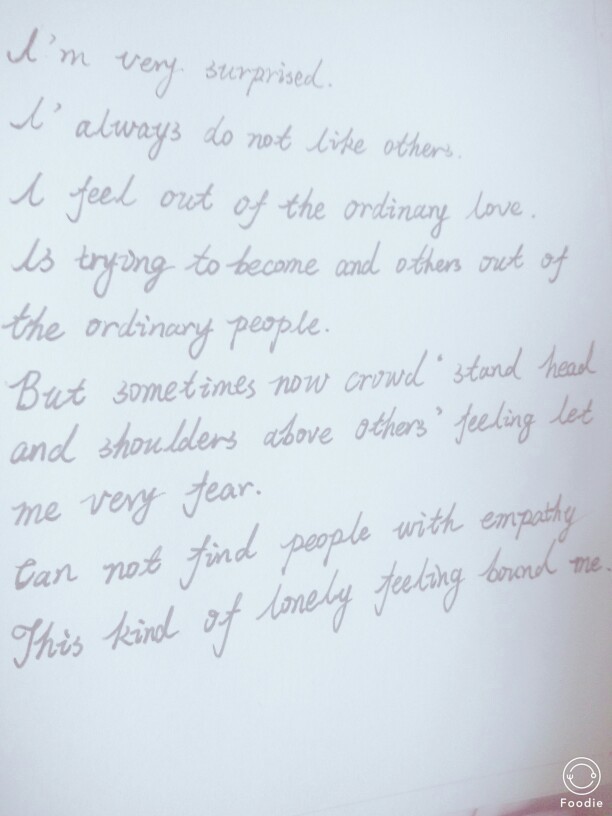 I'm very surprised.
I' always do not like others.
I feel out of the ordinary love.
Is trying to become and others out of
the ordinary people.
But sometimes now crowd‘ stand head
and shoulders above others’ feeling let
me very fear.
Can not find people with empathy
This kind of lonely feeling bound me.
Foodie